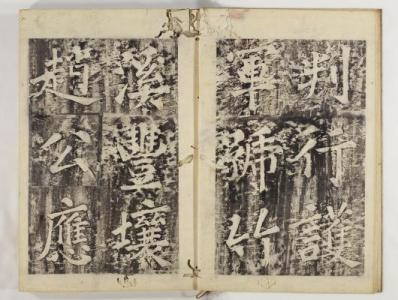 判行護
軍號竹
溪豐壤
趙公應